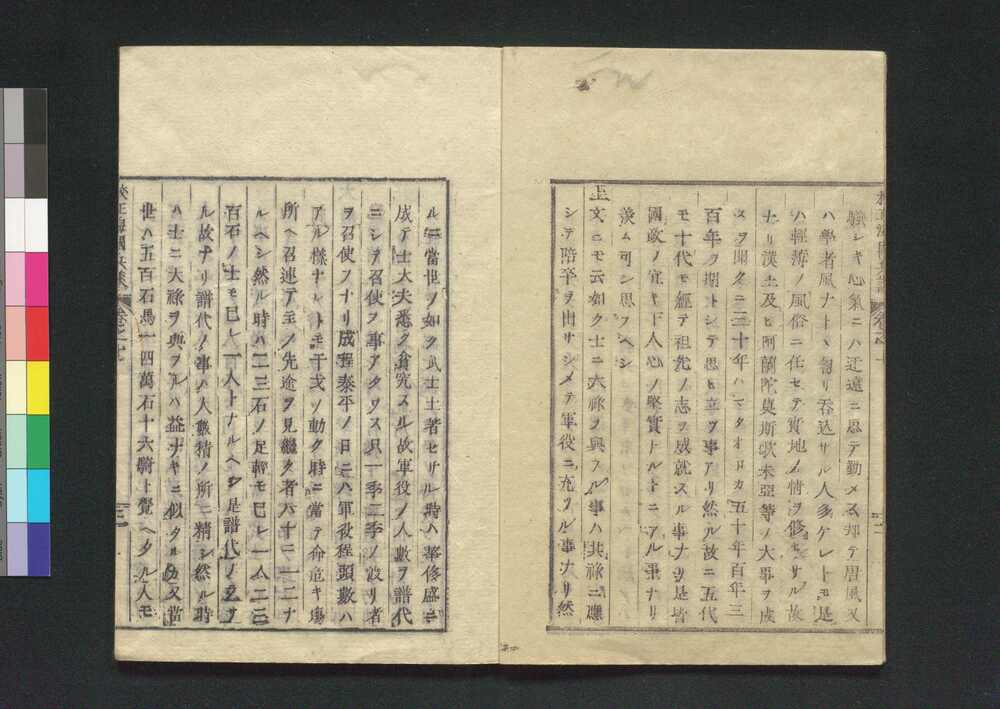 強シキ心氣ニハ迂遠ニ思テ勤メス却テ唐風又
ハ學者風ナトヽ匀リ吞込サル人多ケレトモ是
ハ輕薄ノ風俗ニ任セテ實地ノ情ヲ修セサル故
ナリ漢土及ヒ阿蘭陀莫斯歌未亞等ノ大事ヲ成
スヲ聞クニ二十年ハマタオロカ五十年百年三
百年ヲ期トシテ思ヒ立ツ事アリ然ル故ニ五代
モ十代モ經テ祖先ノ志ヲ成就スル事ナリ是皆
國政ノ宜キト人心ノ堅實トルトニアル事ナリ
羨ム可シ思フヘシ
上文ニモ云如ク士ニ大祿ヲ與フル事ハ其祿ニ應
シテ陪卒ヲ出サシメテ軍役ニ充ツル事ナリ然
ルニ當世ノ如ク武士土著セサル時ハ華修盛ニ
成テ士大夫悉ク貧究スル故軍役ノ人數ヲ譜代
ニシテ召使フ事アタワス只一季二季ノ渡リ者
ヲ召使フナリ成程泰平ノ日ニハ軍役程頭數ハ
アル樣ナレトモ干戈ノ動ク時ニ當テ命危キ場
所ヘ召連テ主ノ先途ヲ見繼ク者八十ニ一二ナ
ルヘシ然ル時ハ二三石ノ足輕モ巳レ一人二三
百石ノ士モ巳レ一人トナルヘシ是譜代ノ
ル故ナリ譜代ノ事ハ人數積ノ所ニ精シ然ル時
ハ士ニ大祿ヲ與フルハ益ナキニ似タル又當
世ハ五百石馬一四萬石十六騎ト覺ヘタル人モ